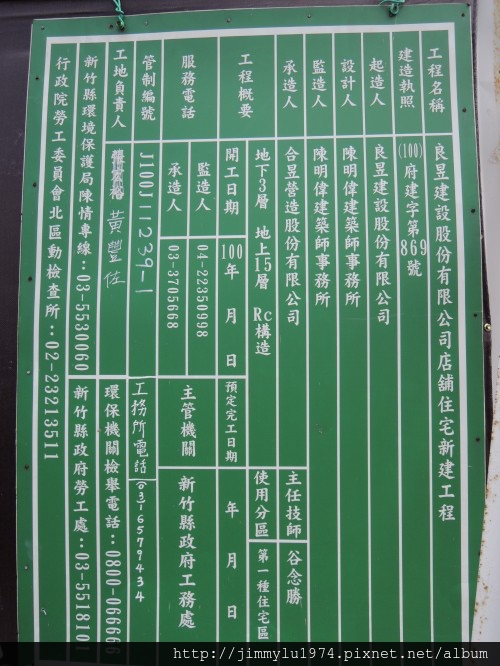 工程名稱
良昱建設股份有限公司店舖住宅新建工程
建造執照
(100)府建字第869號
起造人
良昱建設股份有限公司
設計人
陳明偉建築師事務所
監造人
陳明偉建築師事務所
承造人
合昱營造股份有限公司
主任技師
谷念勝
工程概要
地下3層 地上15層 Rc構造
使用分區
第一種住宅區
開工日期
100年 月 日
預定完工日期
年 月 日
服務電話
監造人
04-22350998
承造人
03-3705668
主管機關
新竹縣政府工務處
管制編號
J100J11239-1
工務所電話
(03)-6579434
工地負責人
黃豐佐
環保機關檢舉電話：0800-066666
新竹縣環境保護局陳情專線：03-5530060
新竹縣政府勞工處：03-5518101
行政院勞工委員會北區勞動檢查所：02-23213511
http://jimmylu1974.pixnet.net/album